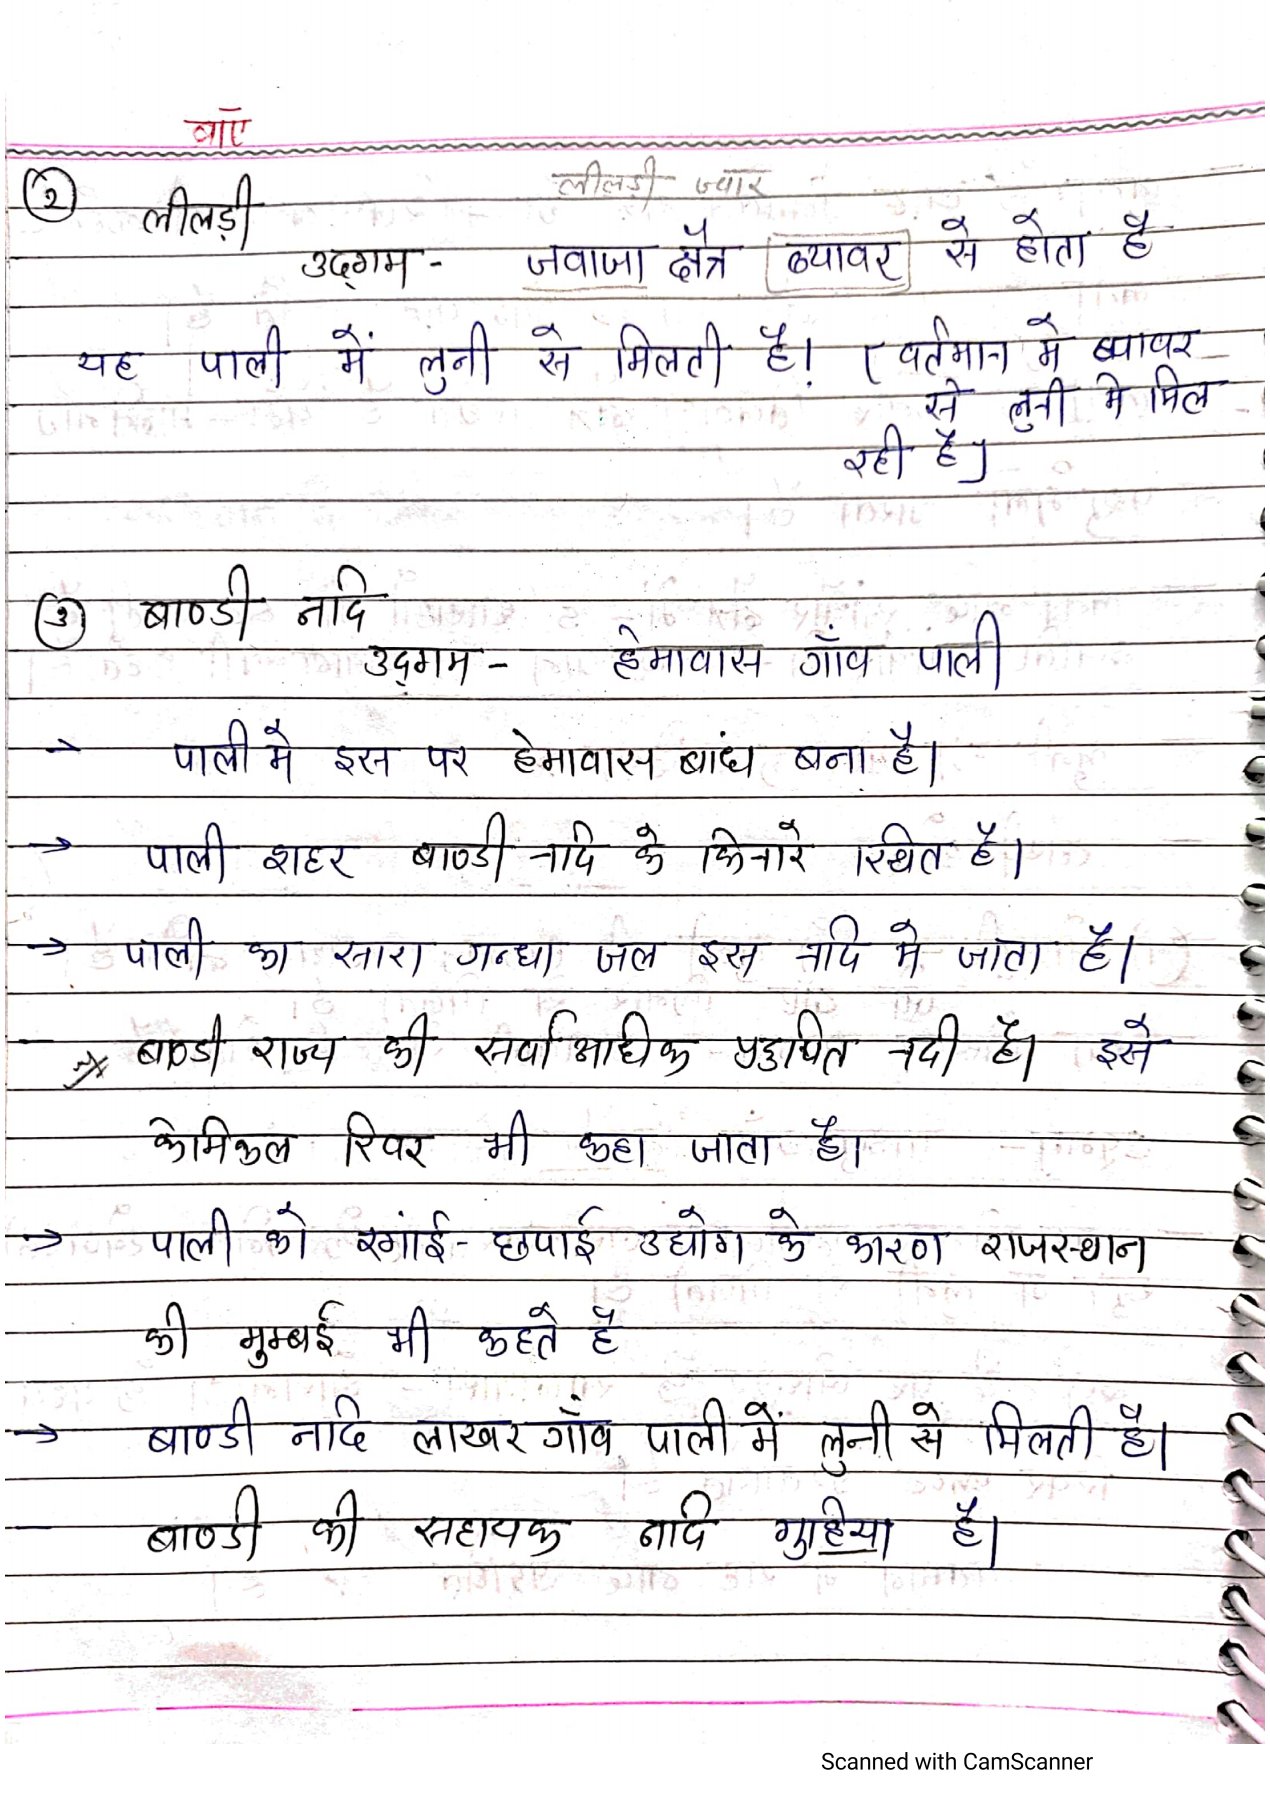 बाएँ
लीलड़ी ज्वार
② लीलड़ी
उद्‌गम - जवाजा क्षैत्र ब्यावर से होता है
यह पाली में लुनी से मिलती है। (वर्तमान मे ब्यावर
से लुनी मे मिल
रही है)
③ बाण्डी नदि
उद्‌गम - हेमावास गाँव पाली
→ पाली मे इस पर हेमावास बांध बना है।
→ पाली शहर बाण्डी नदि के किनारे स्थित है।
→ पाली का सारा गन्धा जल इस नदि मे जाता है।
बाण्डी राज्य की सर्वाआधीक प्रदुषित नदी है। इसे
केमिकल रिवर भी कहा जाता है।
→ पाली को रगांई - छपाई उद्योग के कारण राजस्थान
की मुम्बई भी कहते है
→ बाण्डी नदि लाखर गाँव पाली में लुनी से मिलती है।
बाण्डी की सहायक नदि गुहिया है।
Scanned with CamScanner